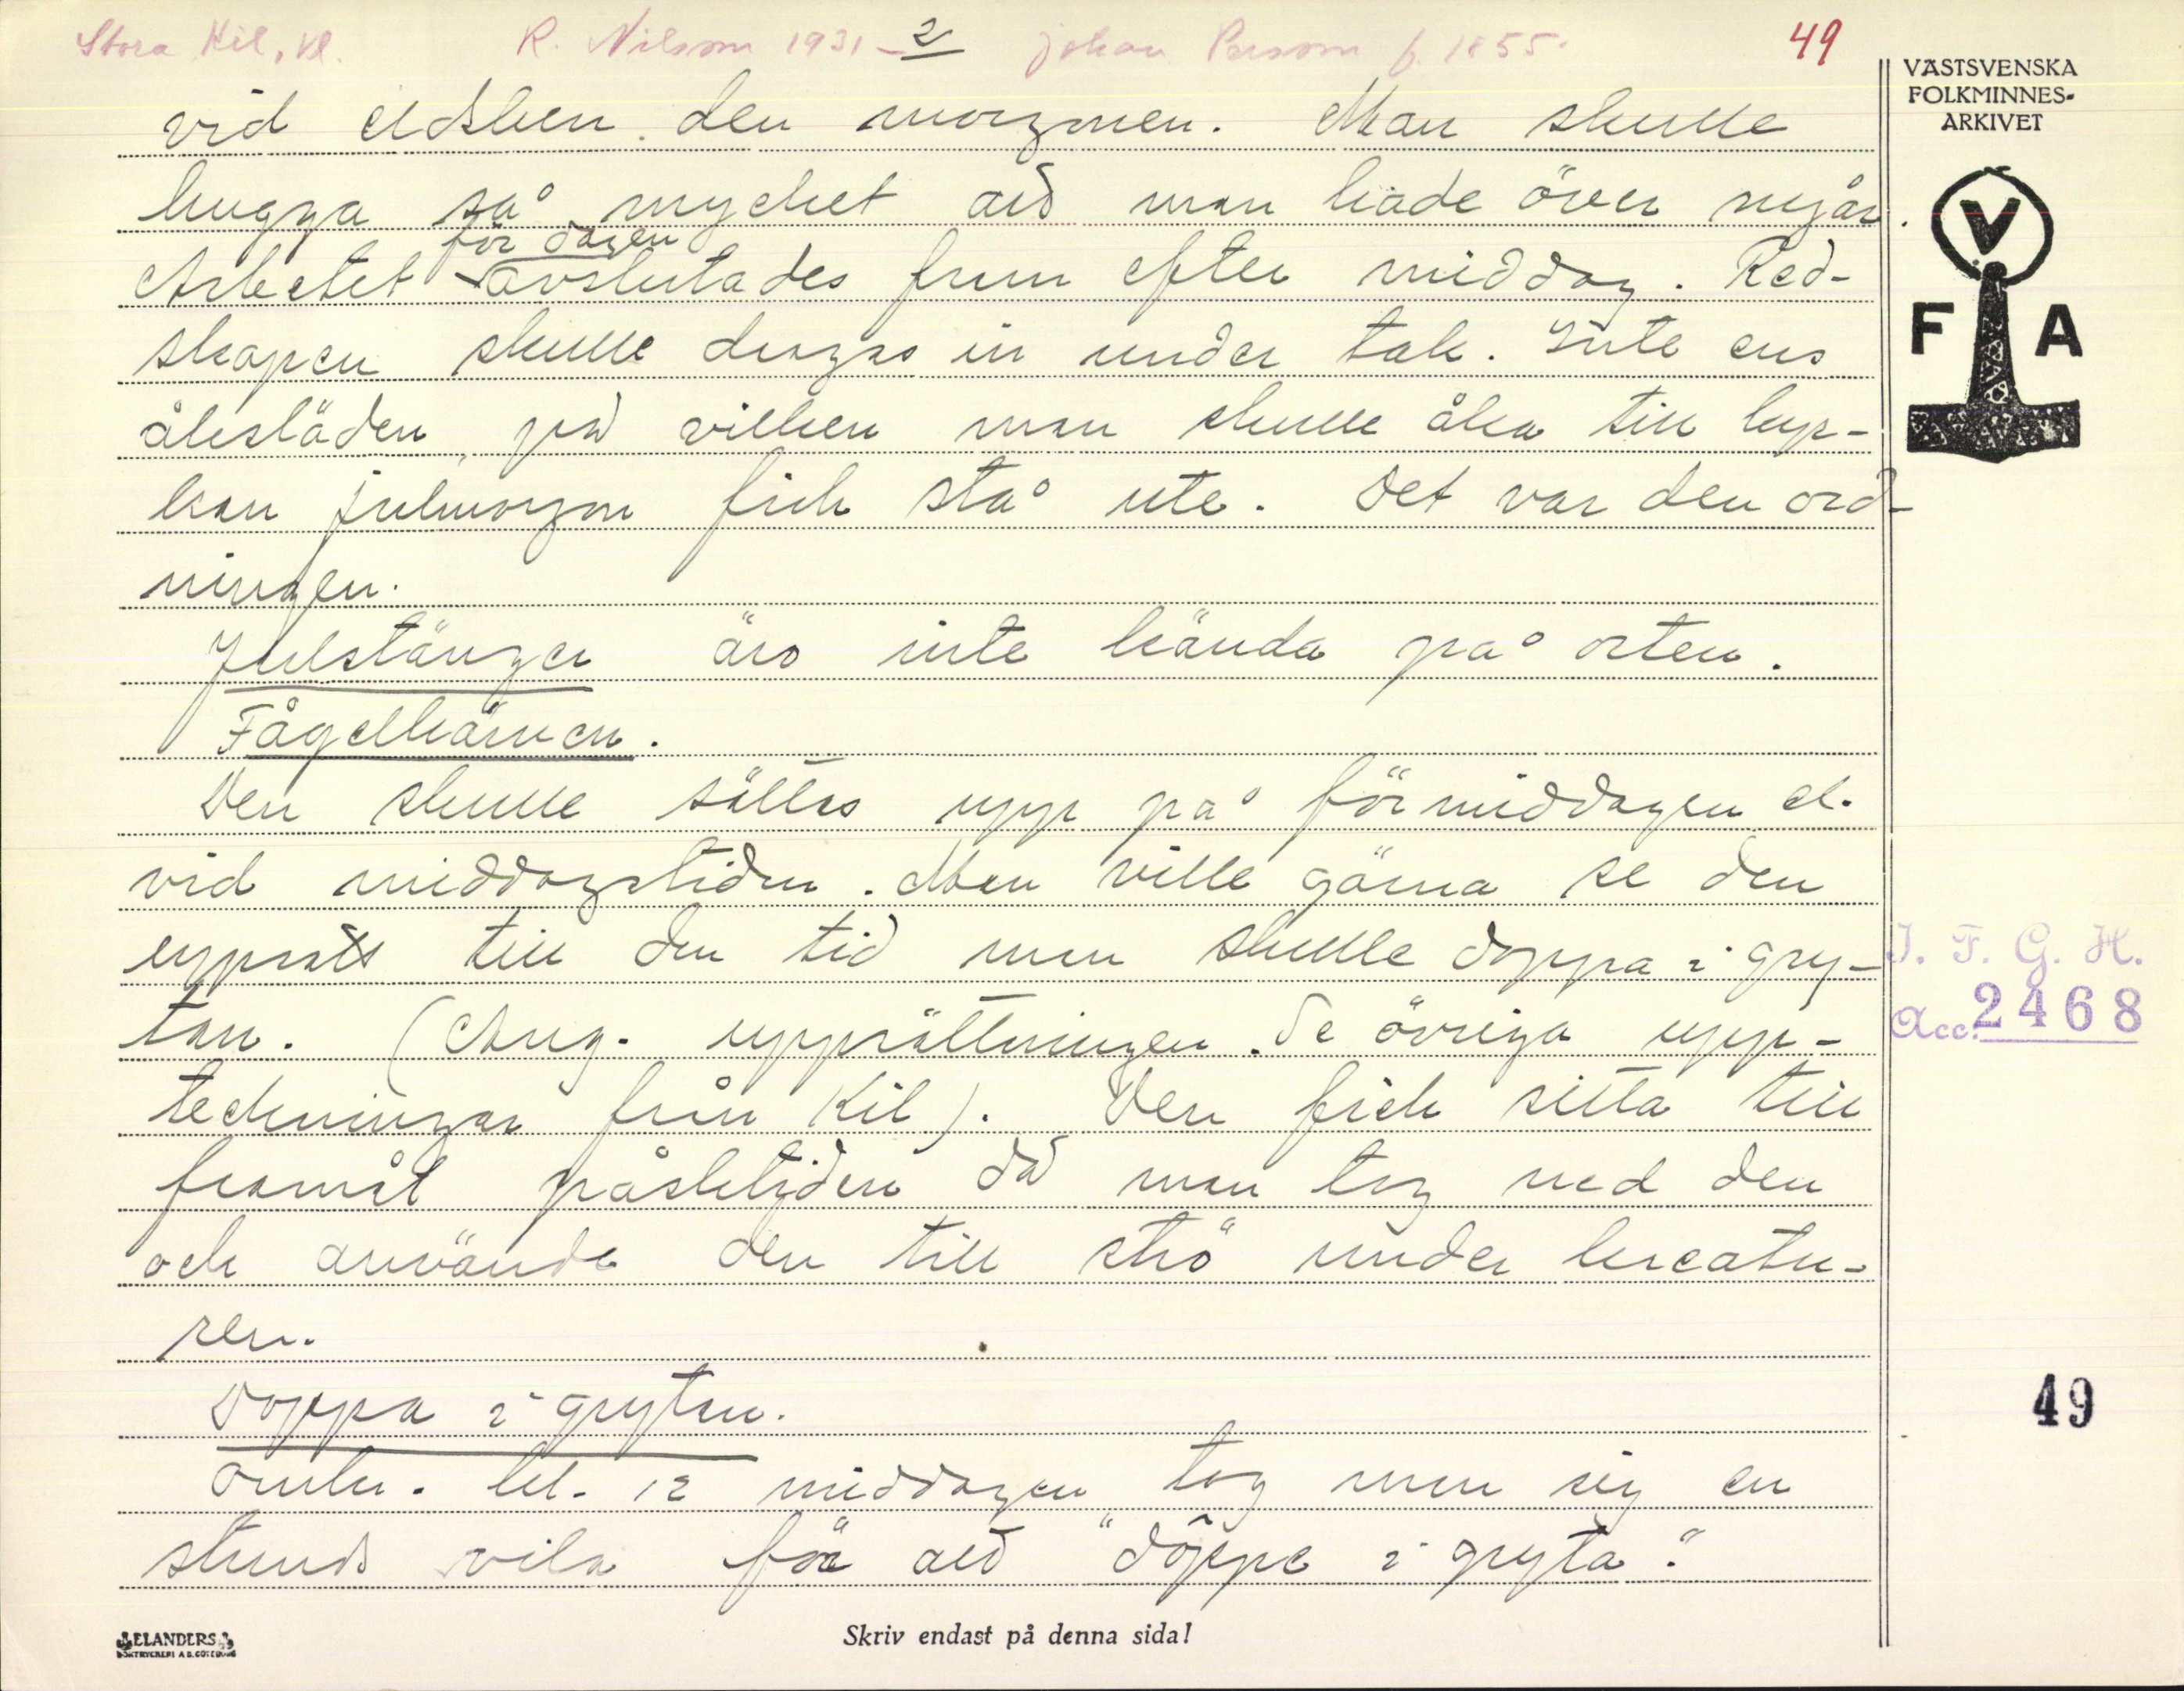 Stora Kil, Vl. R. Nilsson 1931 - 2 Johan Persson f. 1855. 49
VÄSTSVENSKA
FOLKMINNES-
ARKIVET
V
F A
vid elden den morgonen. Man skulle
hugga så mycket att man hade över nyår.
för dagen
Arbetet avslutades fram efter middag. Red-
skapen skulle dragas in under tak. Inte ens
åksläden på vilken man skulle åka till kyr-
kan julmorgon fick stå ute. Det var den ord-
ningen.
Julstänger äro inte kända på orten.
Fågelkärven.
Den skulle sättas upp på förmiddagen el.
vid middagstiden. Man ville gärna se den
uppsatt till den tid man skulle doppa i gry-
tan. (Ang. uppsättningen se övriga upp-
teckningar från Kil). Den fick sitta till
framåt påsktiden då man tog ned den
och använde den till strö under kreatu-
ren.
Doppa i grytan.
Omkr. kl. 12 middagen tog man sig en
stunds vila för att "döppe i gryta".
I. F. G. H.
Acc. 2468
49
ELANDERS
BOKTRYCKERI A.B. GÖTEBORG
Skriv endast på denna sida!